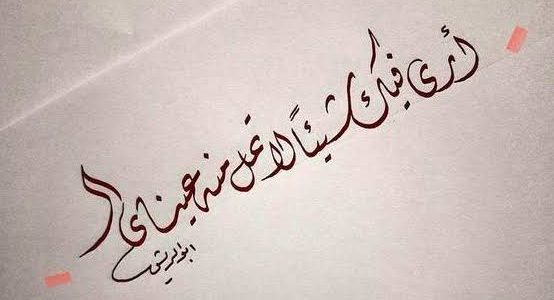 أرى فيك شيئاً لا تمل منه عيناي
ابو الريش